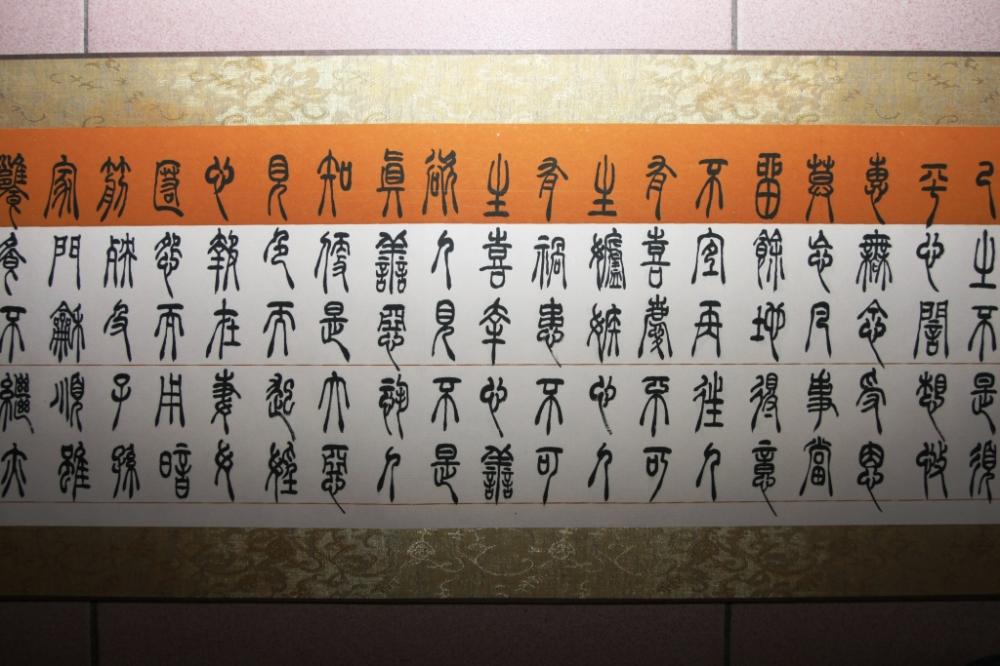 己之不是須
平心闇想施
惠無念受恩
莫忘凡事當
留餘地得意
不宜再往人
有喜慶不可
生妒嫉心人
有禍患不可
生喜幸心善
欲人見不是
眞善惡恐人
知便是大惡
見色而起婬
心報在妻女
匿怨而用暗
箭殃及子孫
家門龢順雖
饔飧不繼亦